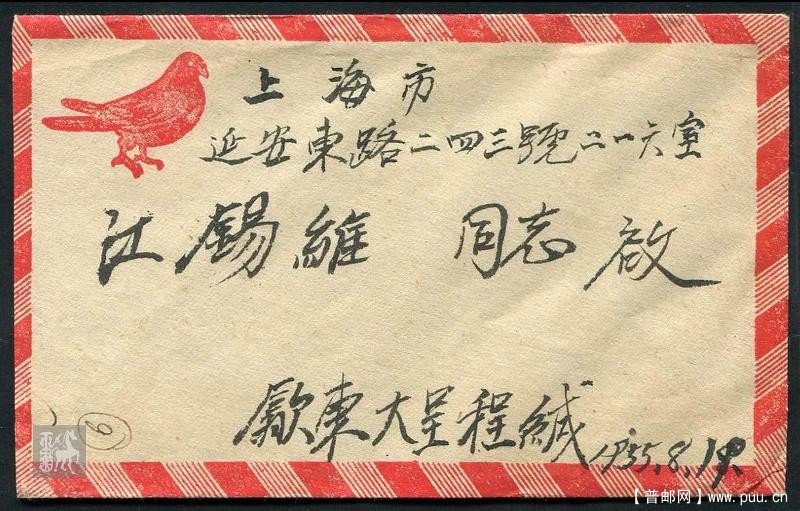 上海市
延安東路二四三號二一六室
江錫維 同志 啟
歙東大呈程緘 1955.8.19.
6
【普邮网】www.puu.cn